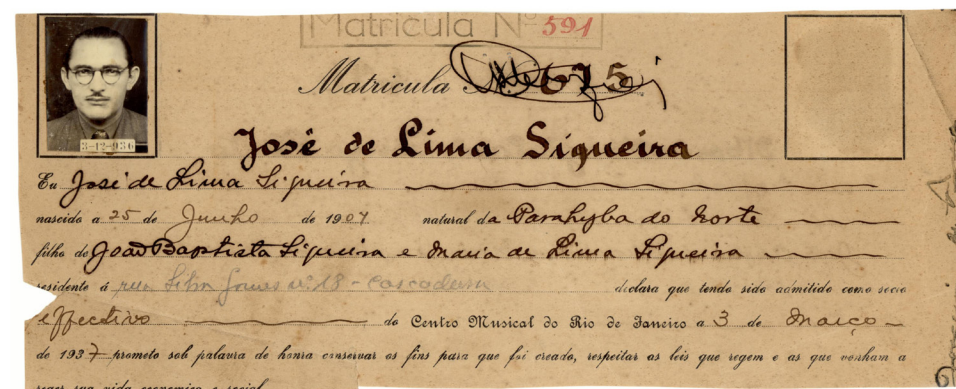 Matricula Nº 591
Matricula Nº 675
3-12-936
José de Lima Siqueira
Eu José de Lima Siqueira
nascido a 25 de Junho de 1907 natural da Parahyba do Norte
filho de João Baptista Siqueira e Maria de Lima Siqueira
residente á rua Silva Gomes nº 18 - Cascadura declara que tendo sido admittido como socio
effectivo do Centro Musical do Rio de Janeiro a 3 de Março
de 1937 prometo sob palavra de honra conservar os fins para que foi creado, respeitar as leis que regem e as que venham a
reger sua vida economica e social